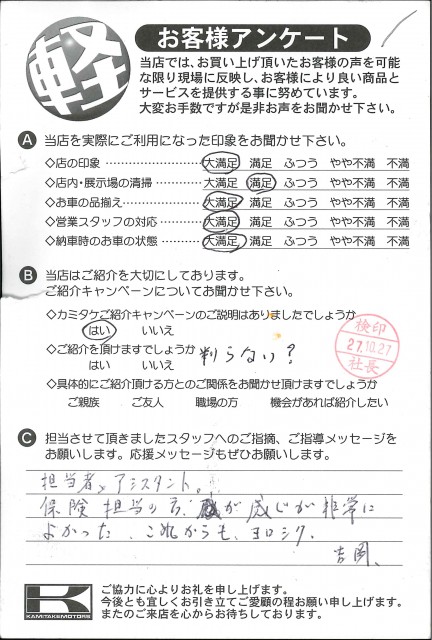 軽
お客様アンケート
当店では、お買い上げ頂いたお客様の声を可能
な限り現場に反映し、お客様により良い商品と
サービスを提供する事に努めています。
大変お手数ですが是非お声をお聞かせ下さい。
A 当店を実際にご利用になった印象をお聞かせ下さい。
◇店の印象 大満足 満足 ふつう やや不満 不満
◇店内・展示場の清掃 大満足 満足 ふつう やや不満 不満
◇お車の品揃え 大満足 満足 ふつう やや不満 不満
◇営業スタッフの対応 大満足 満足 ふつう やや不満 不満
◇納車時のお車の状態 大満足 満足 ふつう やや不満 不満
B 当店はご紹介を大切にしております。
ご紹介キャンペーンについてお聞かせ下さい。
◇カミタケご紹介キャンペーンのご説明はありましたでしょうか
はい いいえ
◇ご紹介を頂けますでしょうか 判らない?
はい いいえ
検印
27.10.27
社長
◇具体的にご紹介頂ける方とのご関係をお聞かせ頂けますでしょうか
ご親族 ご友人 職場の方 機会があれば紹介したい
C 担当させて頂きましたスタッフへのご指摘、ご指導メッセージを
お願いします。応援メッセージもぜひお願いします。
担当者、アシスタント。
保険担当の方、が感じが非常に
よかった、これからも、ヨロシク。
吉岡、
K
KAMITAKEMOTORS
ご協力に心よりお礼を申し上げます。
今後とも宜しくお引き立てご愛顧の程お願い申し上げます。
またのご来店を心からお待ちしております。